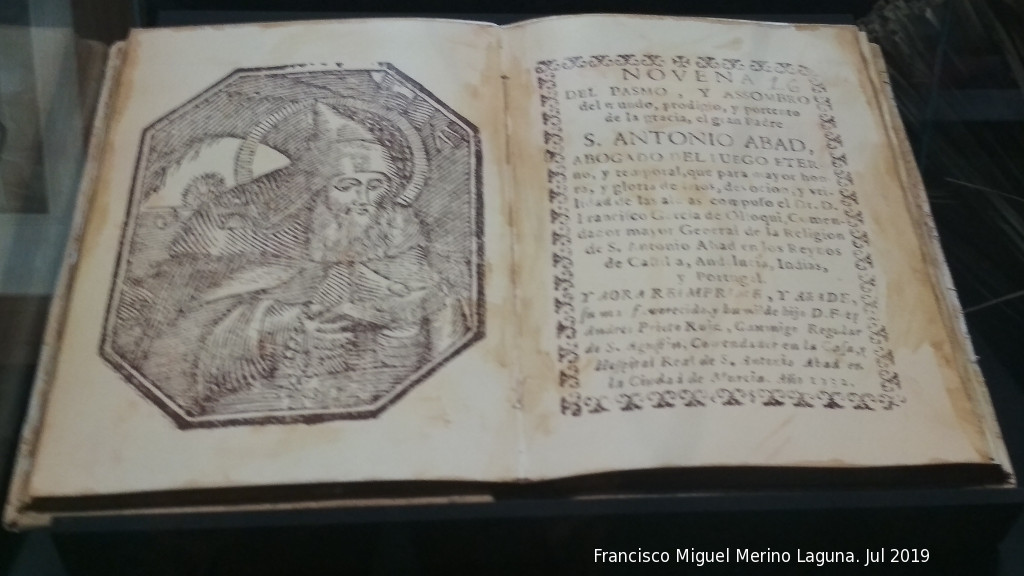 NOVENA
DEL PASMO, Y ASSOMBRO
del mundo, prodigio, y portento
de la gracia, el gran Padre
S. ANTONIO ABAD,
ABOGADO DEL FUEGO ETER-
no, y temporal, que para mayor hon-
ra, y gloria de devocion, y
lidad de las almas compuso el D.
Francisco Garcia de Olloqui, Comen-
dador mayor General de la Religion
de S. Antonio Abad en los Reynos
de Castilla, Andalucia, Indias,
y Portugal.
Y AORA REIMPRIME, Y AÑADE,
su mas favorecido, y hijo D. F.
Andres Prieto Ruiz, Canonigo Reglar
de S. Agustin, Comendador en la Casa, y
Hospital Real de S. Antonio Abad en
la Ciudad de Murcia. Año
Francisco Miguel Merino Laguna. Jul 2019